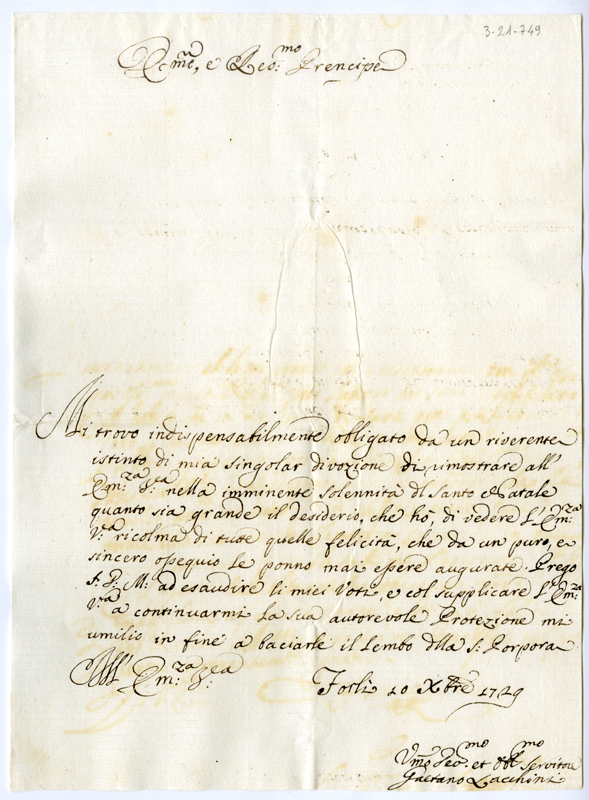 3-21-749
Em.mo, e Rev.mo Prencipe
Mi trovo indispensabilmente obligato da un riverente
istinto di mia singolar divozione di rimostrare all'
Em:za V:ra nella imminente solennità di Santo Natale
quanto sia grande il desiderio, che hò, di vedere l'Em:za
V:a ricolma di tutte quelle felicità, che da un puro, e
sincero ossequio le ponno mai essere augurate. Prego
S. D. M: ad esaudire li miei Voti, e col supplicare l'Em:za
V:a à continuarmi la sua autorevole Protezione mi
umilio in fine à baciarle il lembo dlla S: Porpora
All' Em:za V:ra
Forlì 10 Xbre 1729
Vmo Devmo: et Obbmo Servitore
Gaetano Lacchini